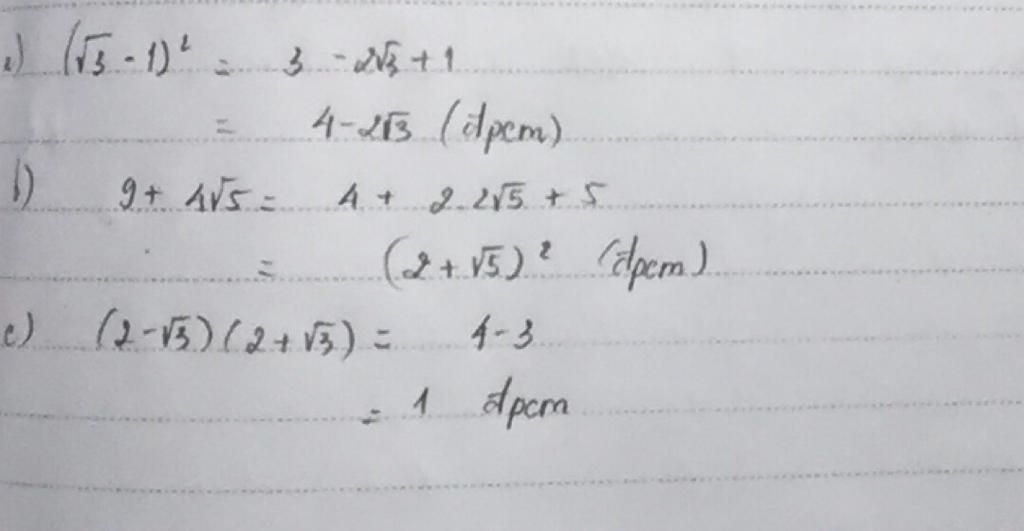 a) (√3 - 1)² = 3 - 2√3 + 1
= 4 - 2√3 (đpcm)
b) 9 + 4√5 = 4 + 2.2√5 + 5
= (2 + √5)² (đpcm)
c) (2 - √3)(2 + √3) = 4 - 3
= 1 đpcm